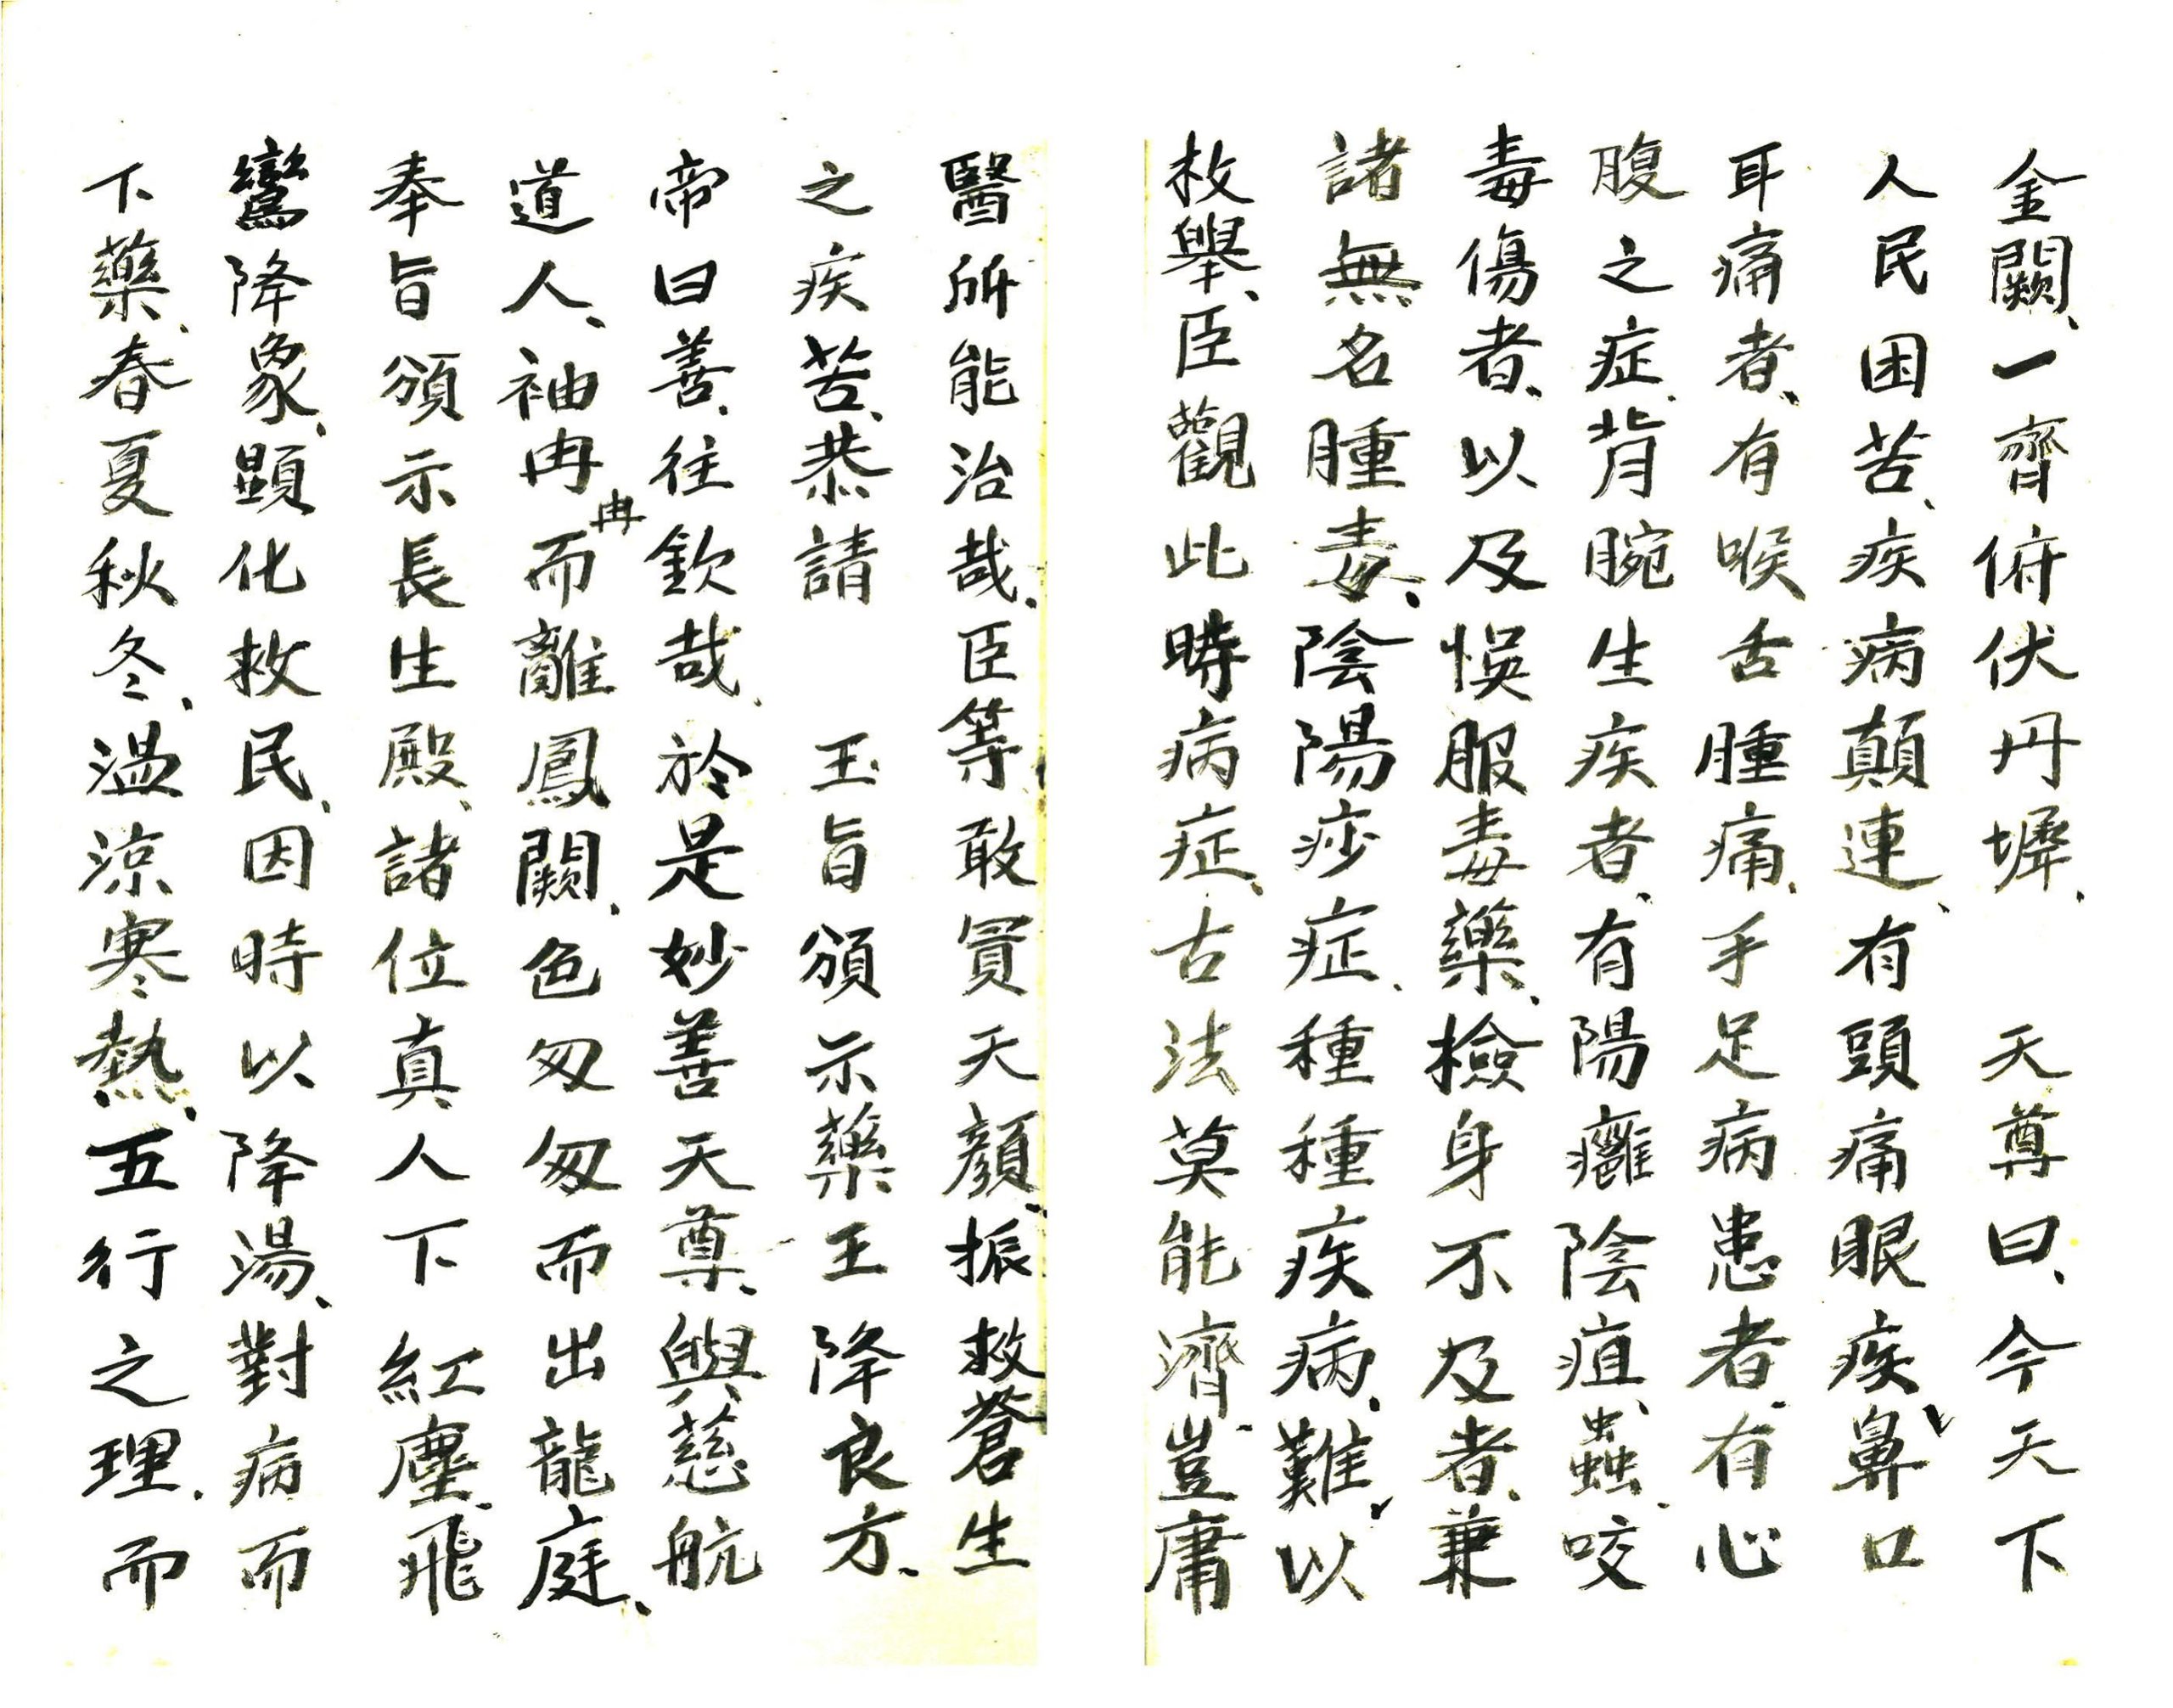 金闕、一齊俯伏丹墀、 天尊曰、今天下
人民困苦、疾病顛連、有頭痛眼疾、鼻口
耳痛者、有喉舌腫痛、手足病患者、有心
腹之症、背腕生疾者、有陽癰陰疽、蟲咬
毒傷者、以及悞服毒藥、檢身不及者、兼
諸無名腫毒、陰陽痧症、種種疾病、難以
枚舉、臣觀此時病症、古法莫能濟、豈庸
醫所能治哉、臣等敢冒天顏、振救蒼生
之疾苦、恭請 玉旨頒示藥王降良方、
帝曰善、往欽哉、於是妙善天尊、與慈航
道人、袖冉冉而離鳳闕、色匆匆而出龍庭、
奉旨頒示長生殿、諸位真人下紅塵、飛
鸞降象、顯化救民、因時以降湯、對病而
下藥、春夏秋冬、溫涼寒熱、五行之理、而